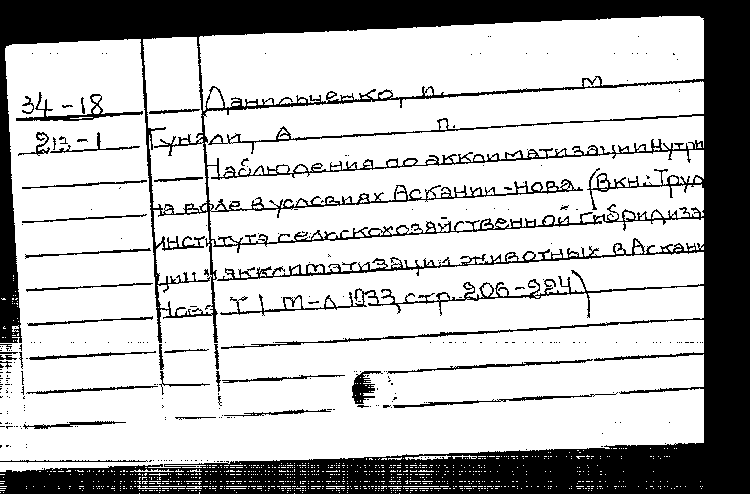 34-18 Данильченко, п. м
213-1 Гунали, А. п.
Наблюдения по акклиматизации нутри
на воле в условиях Аскании-Нова. (Вкн.: Труд
института сельскохозяйственной гибридиза
ции и акклиматизации животных в Аскани
Нова Т I М-Л 1933, стр. 206-224)